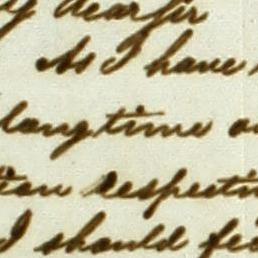 y dear sir
As I have
long time a
tion respectin
I should fe